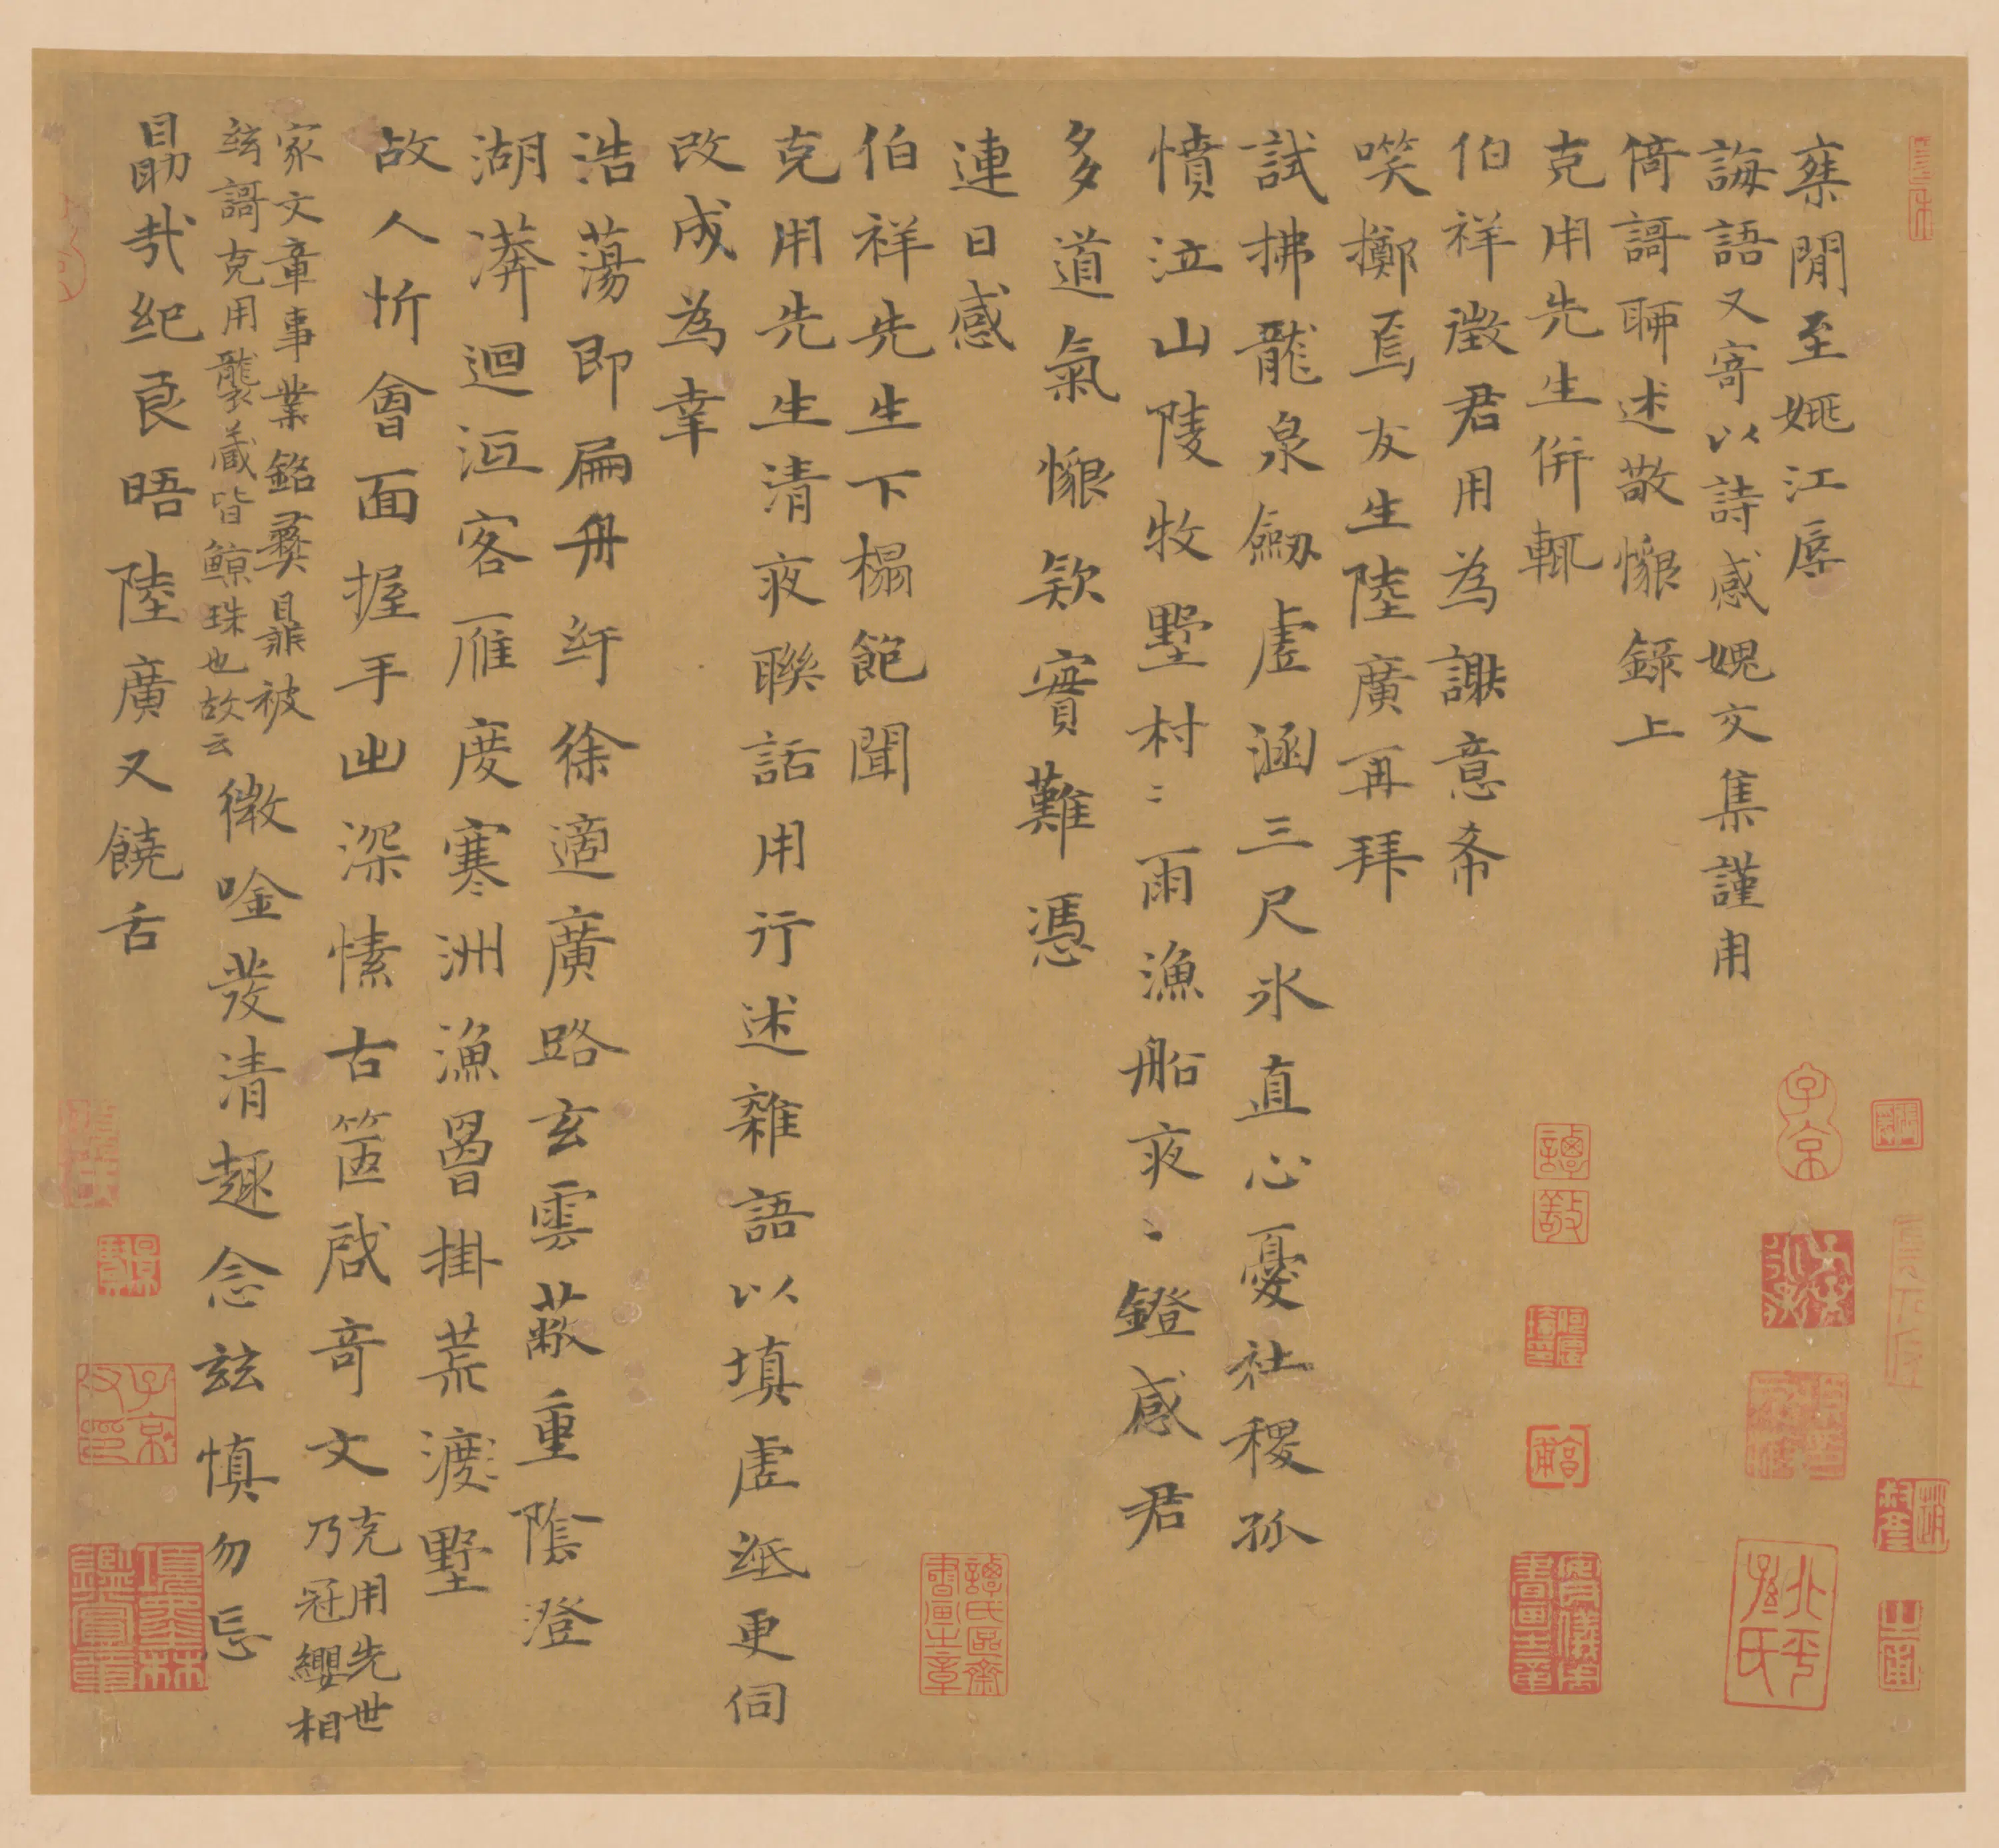 棄閒至姚江辱
誨語又寄以詩感媿交集謹用
倚謌聊述敬懇錄上
克用先生併輒
伯祥徵君用為謝意希
咲擲焉友生陸廣再拜
試拂龍泉劒虛涵三尺水直心憂社稷孤
憤泣山陵牧墅村〻雨漁船夜〻鐙感君
多道氣懇欵實難憑
連日感
伯祥先生下榻飽聞
克用先生清夜聯話用行述雜語以填虛紙更伺
改成為幸
浩蕩即扁舟紆徐適廣路玄雲蔽重陰澄
湖漭迴洄客雁度寒洲漁罾掛荒渡墅
故人忻會面握手出深愫古篋啟奇文
克用先世
乃冠纓相
家文章事業銘彝鼎被
絃謌克用襲藏皆鯨珠也故云
微唫發清趣念茲慎勿忘
勗哉紀良晤陸廣又饒舌
子京
項墨林鑑賞章
譚氏區齋書畫之章
北平孫氏